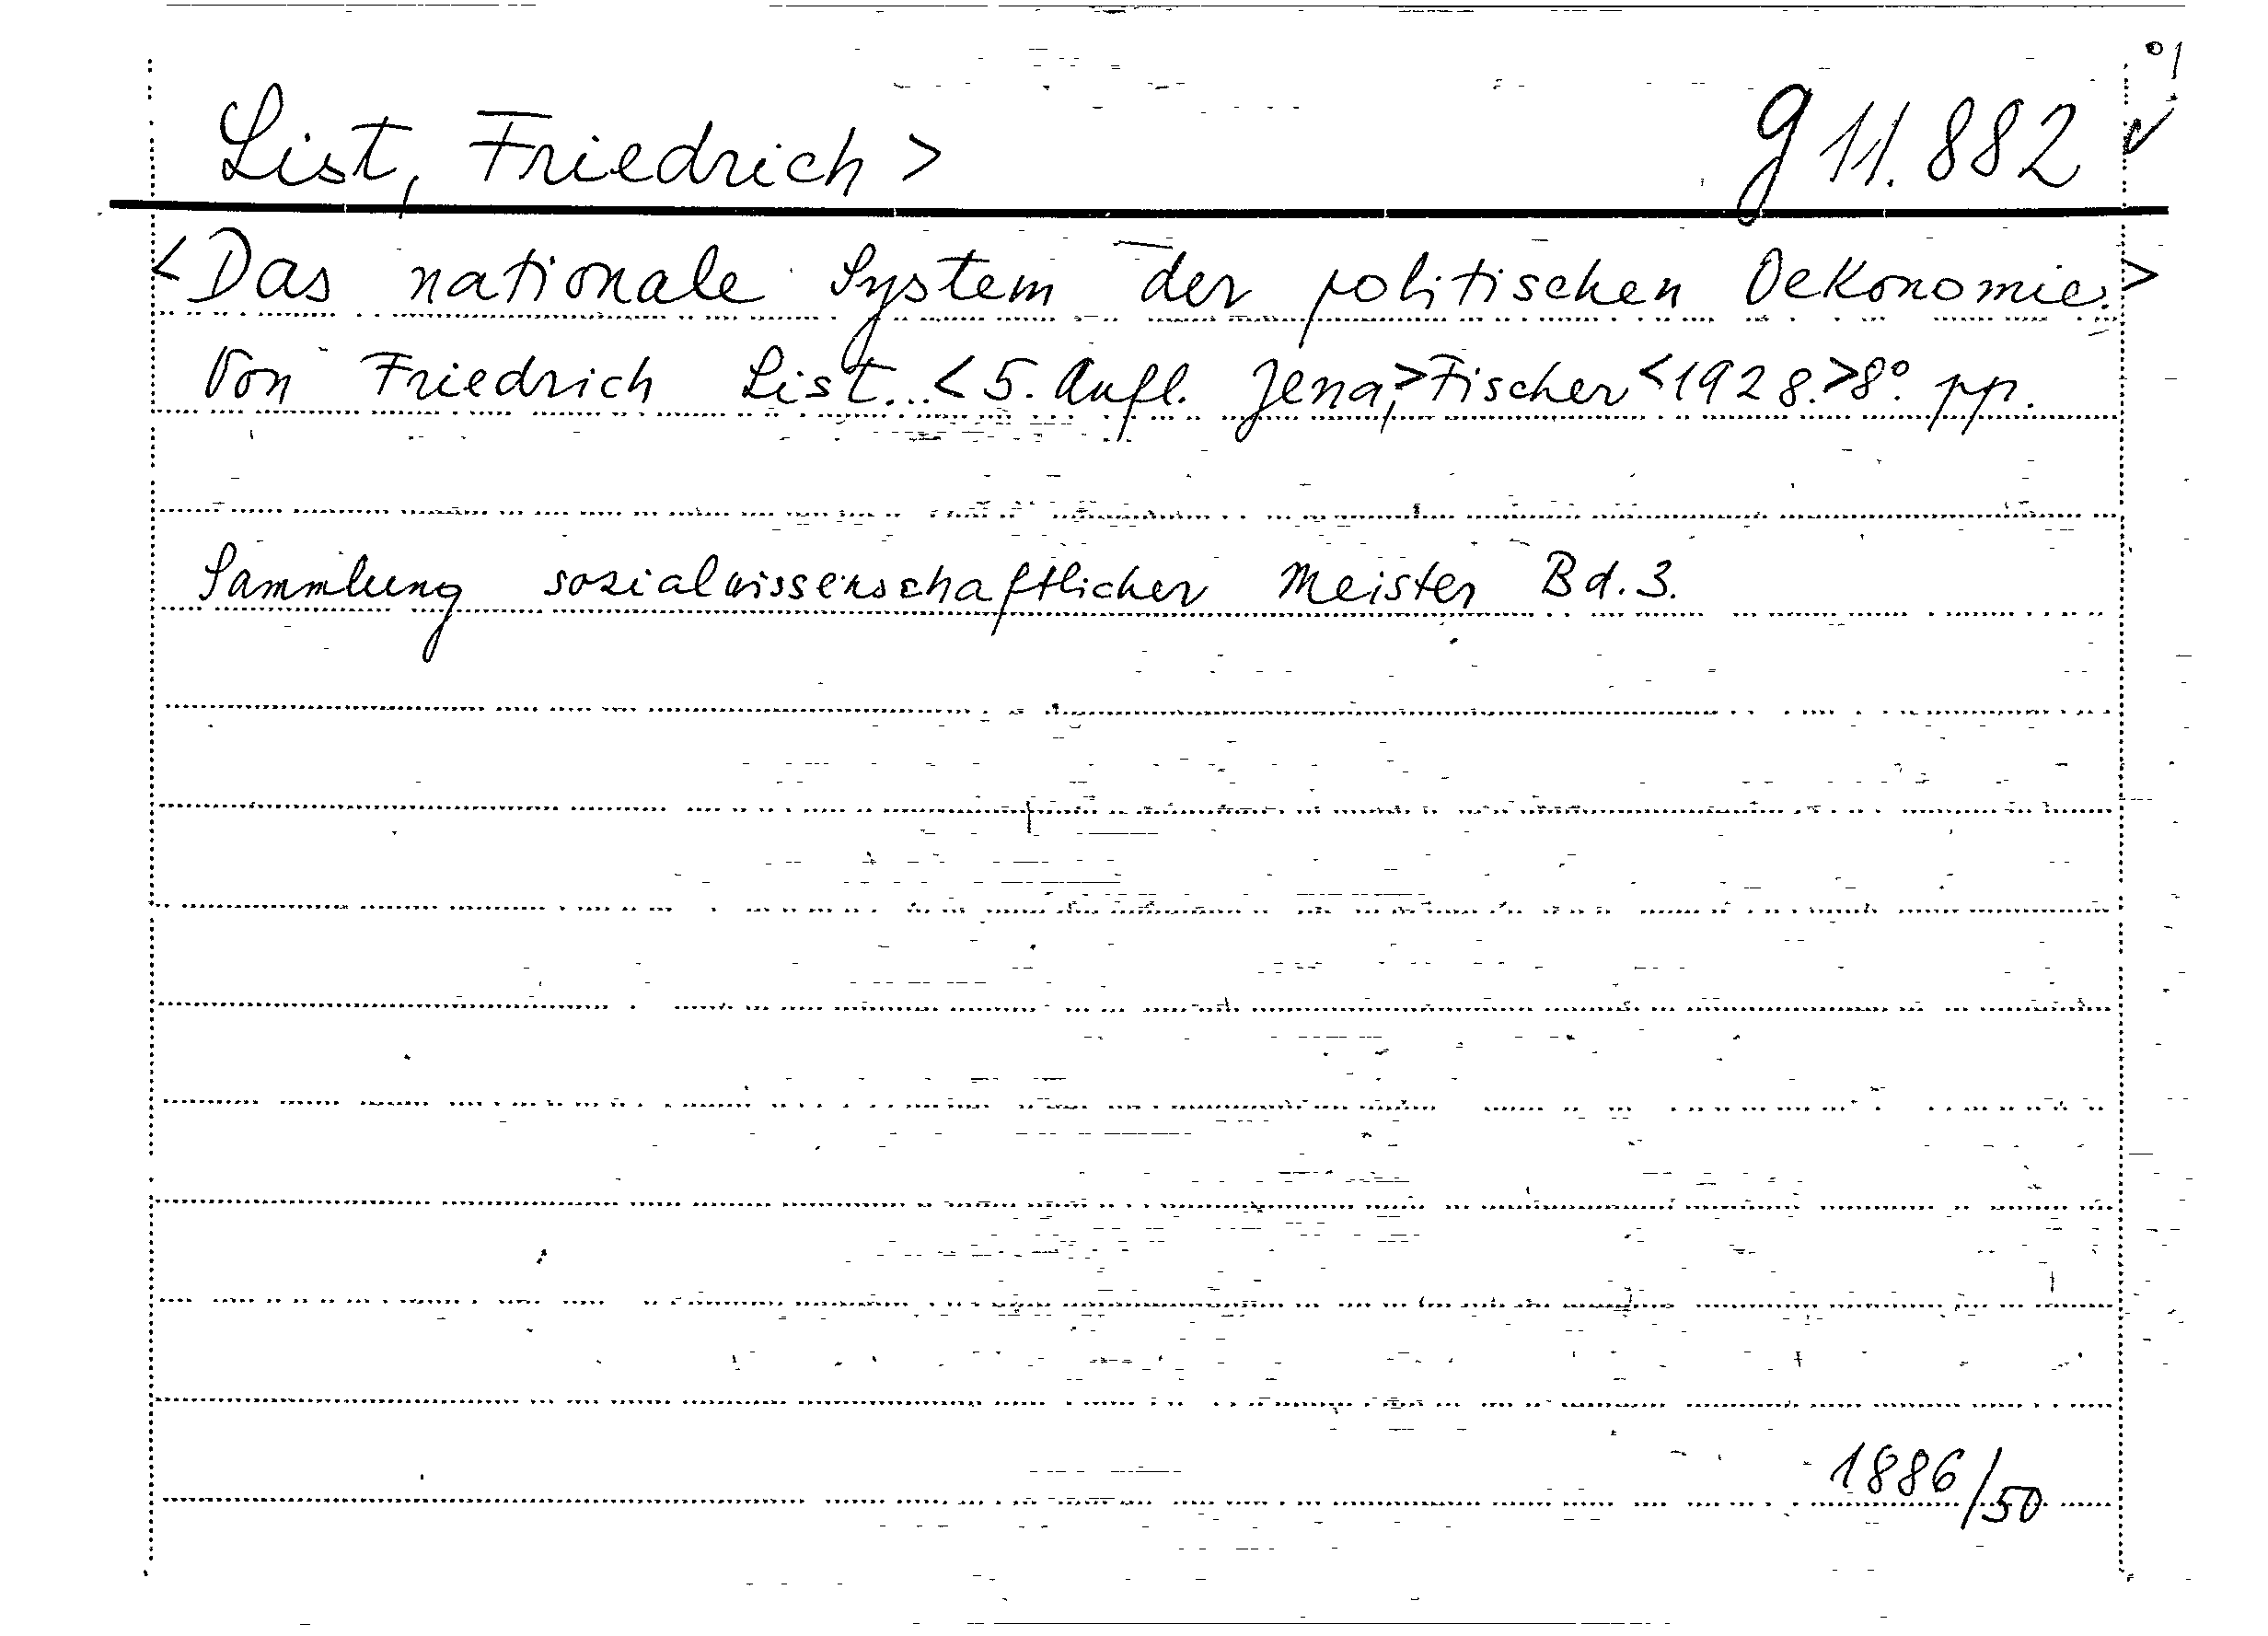 °1
List, Friedrich > g 11.882 ✓
<Das nationale System der politischen Oekonomie.>
Von Friedrich List... <5. Aufl. Jena,> Fischer <1928.> 8°. pp.
Sammlung sozialwissenschaftlicher Meister Bd. 3.
1886/50